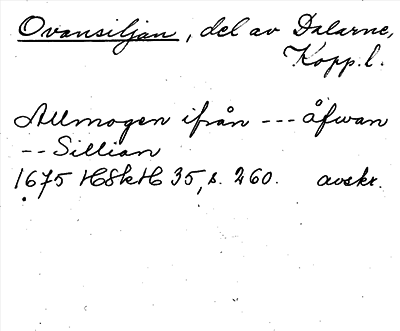 Ovansiljan, del av Dalarne,
Kopp.l.
Allmogen ifrån --- åfwan
-- Sillian
1675 HSkH 35, s. 260. avskr.